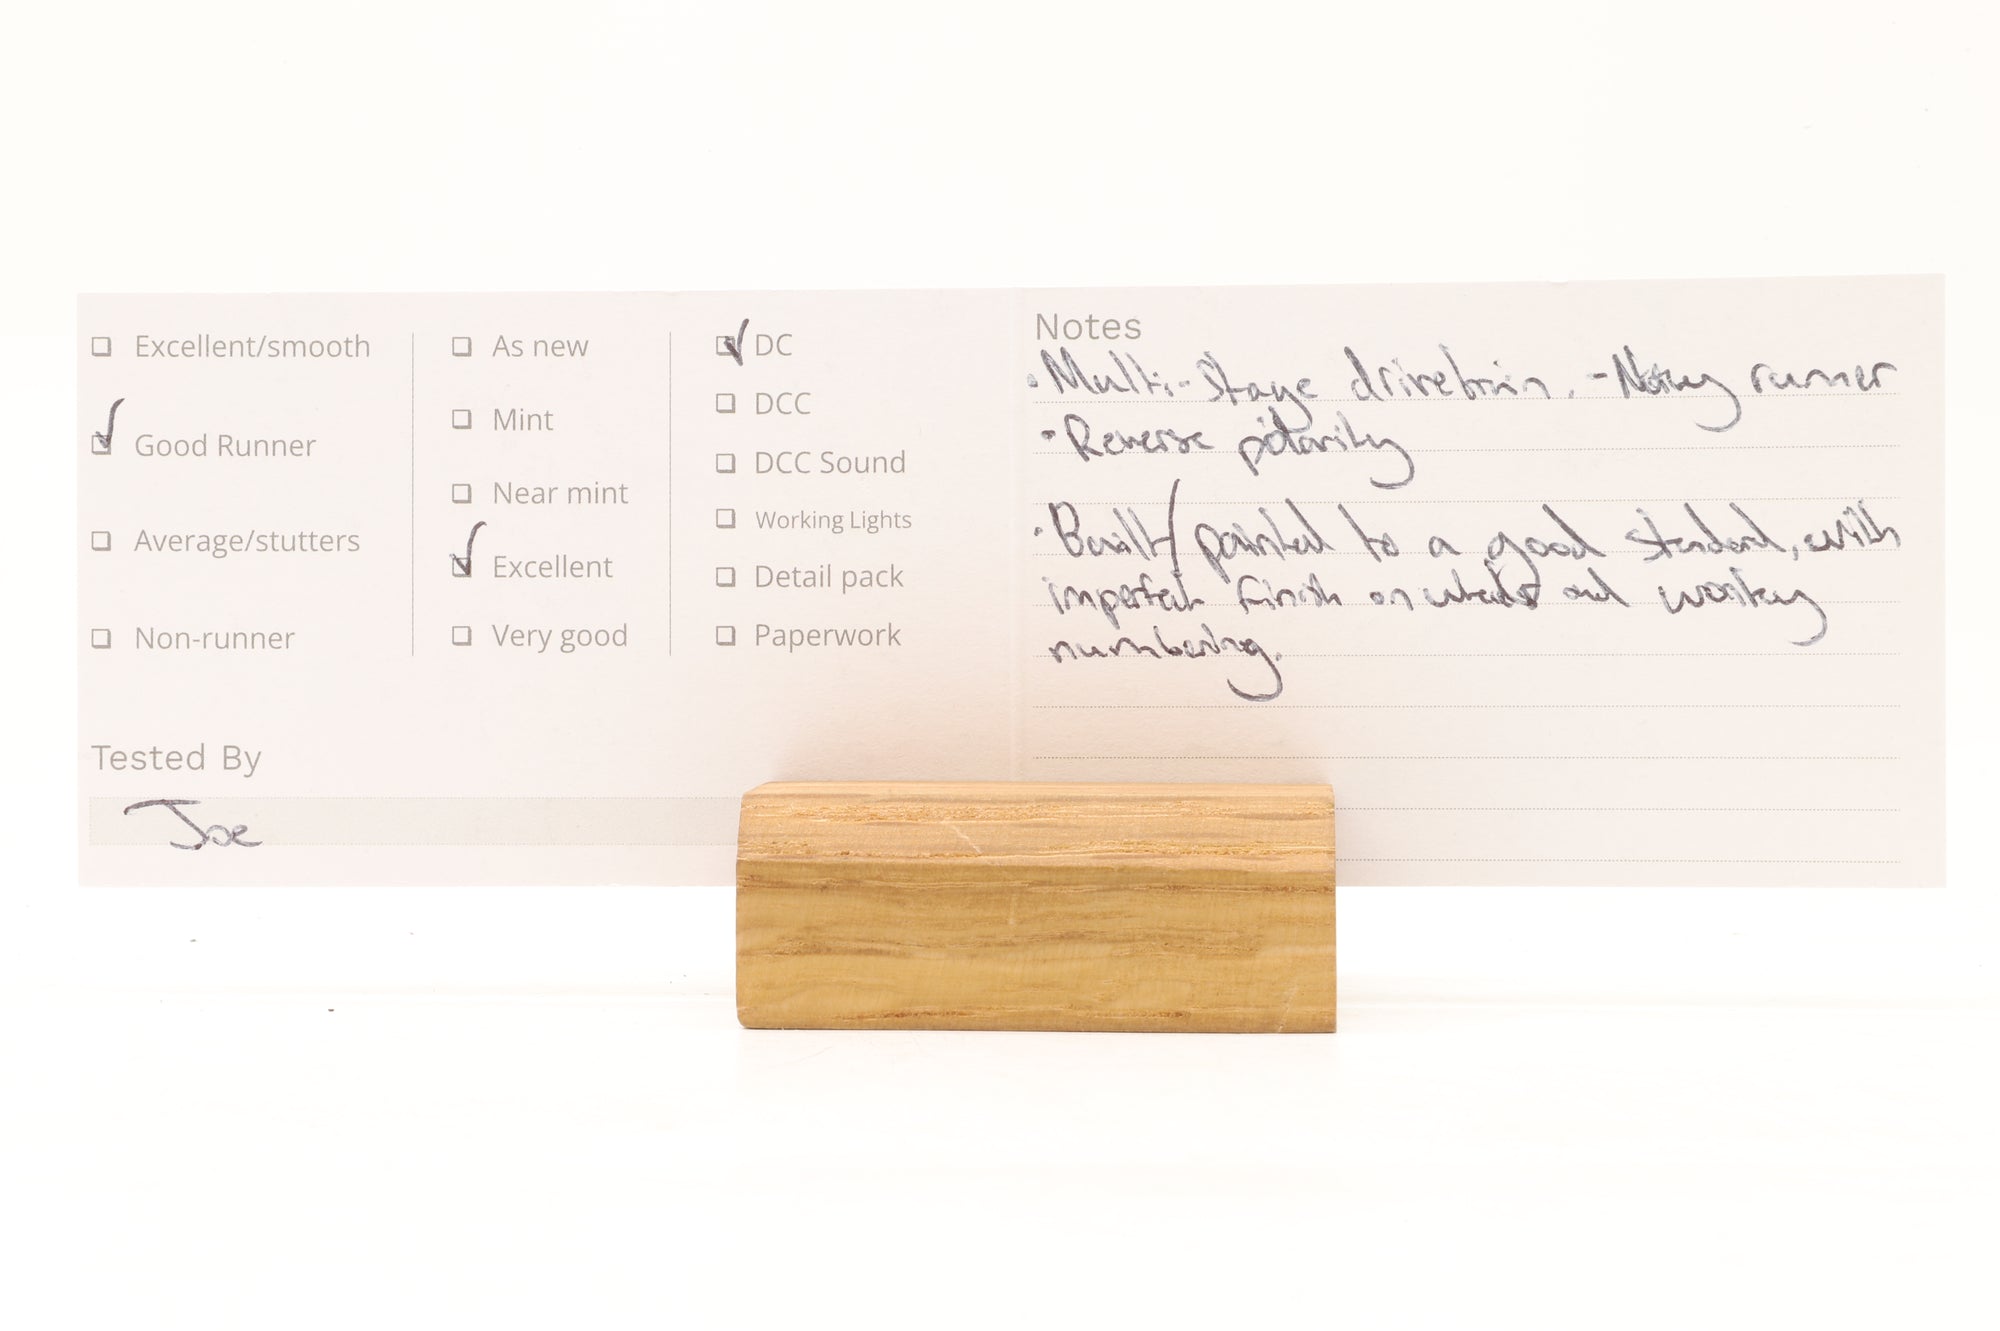 Excellent/smooth
Good Runner
Average/stutters
Non-runner
As new
Mint
Near mint
Excellent
Very good
DC
DCC
DCC Sound
Working Lights
Detail pack
Paperwork
Tested By
Joe
Notes
· Multi-Stage drivetrain. - Noisy runner
- Reverse polarity
· Built/painted to a good standard, with
imperfect finish on and
numbering.